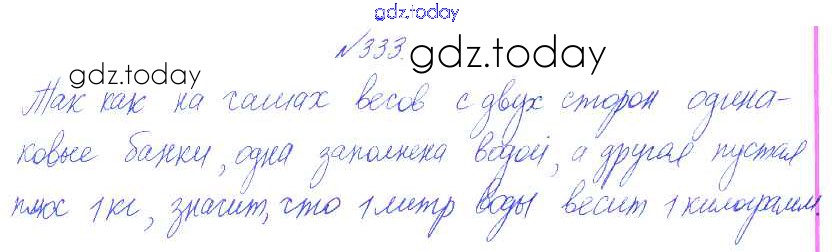 gdz.today
№333. gdz.today
gdz.today
Так как на чашах весов с двух сторон одина-
ковые банки, одна заполнена водой, а другая пустая
плюс 1 кг, значит, что 1 литр воды весит 1 килограмм.